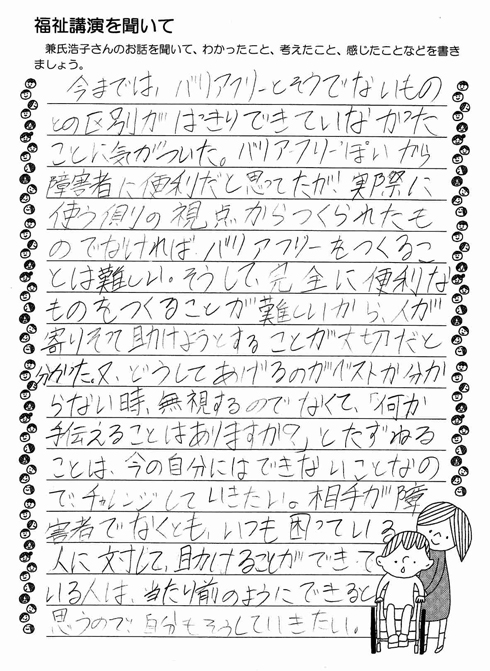 福祉講演を聞いて
兼氏浩子さんのお話を聞いて、わかったこと、考えたこと、感じたことなどを書き
ましょう。
今までは、バリアフリーとそうでないもの
との区別がはっきりできていなかった
ことに気がついた。バリアフリーぽいから
障害者に便利だと思ってたが、実際に
使う側りの視点からつくられたも
のでなければ、バリアフリーをつくるこ
とは難しい。そうして、完全に便利な
ものをつくることが難しいから、人が
寄りそって助けようとすることが大切だと
分かった。又、どうしてあげるのがベストか分か
らない時、無視するのでなくて、「何か
手伝えることはありますか？」とたずねる
ことは、今の自分にはできないことなの
で、チャレンジしていきたい。相手が障
害者でなくとも、いつも困っている
人に対して、助けることができて
いる人は、当たり前のようにできると
思うので、自分もそうしていきたい。